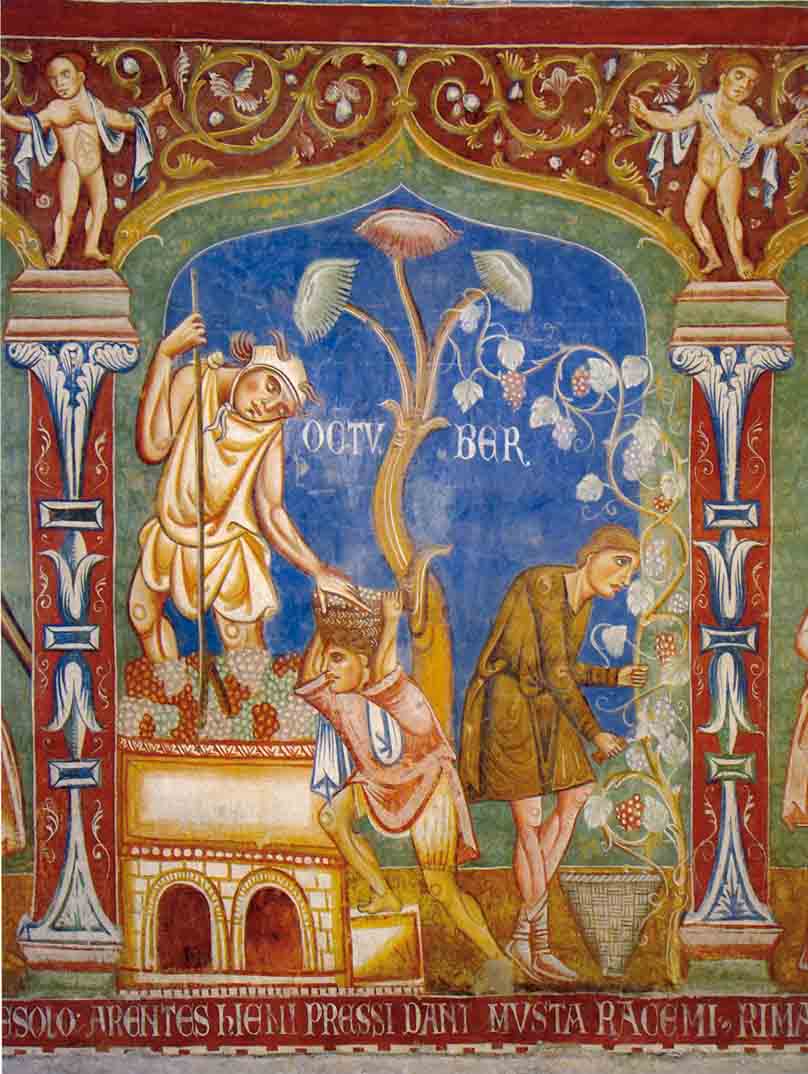 OCTV BER
ESOLO: ARENTES hIENI PRESSI DANT MVSTA RACEMI RIMA